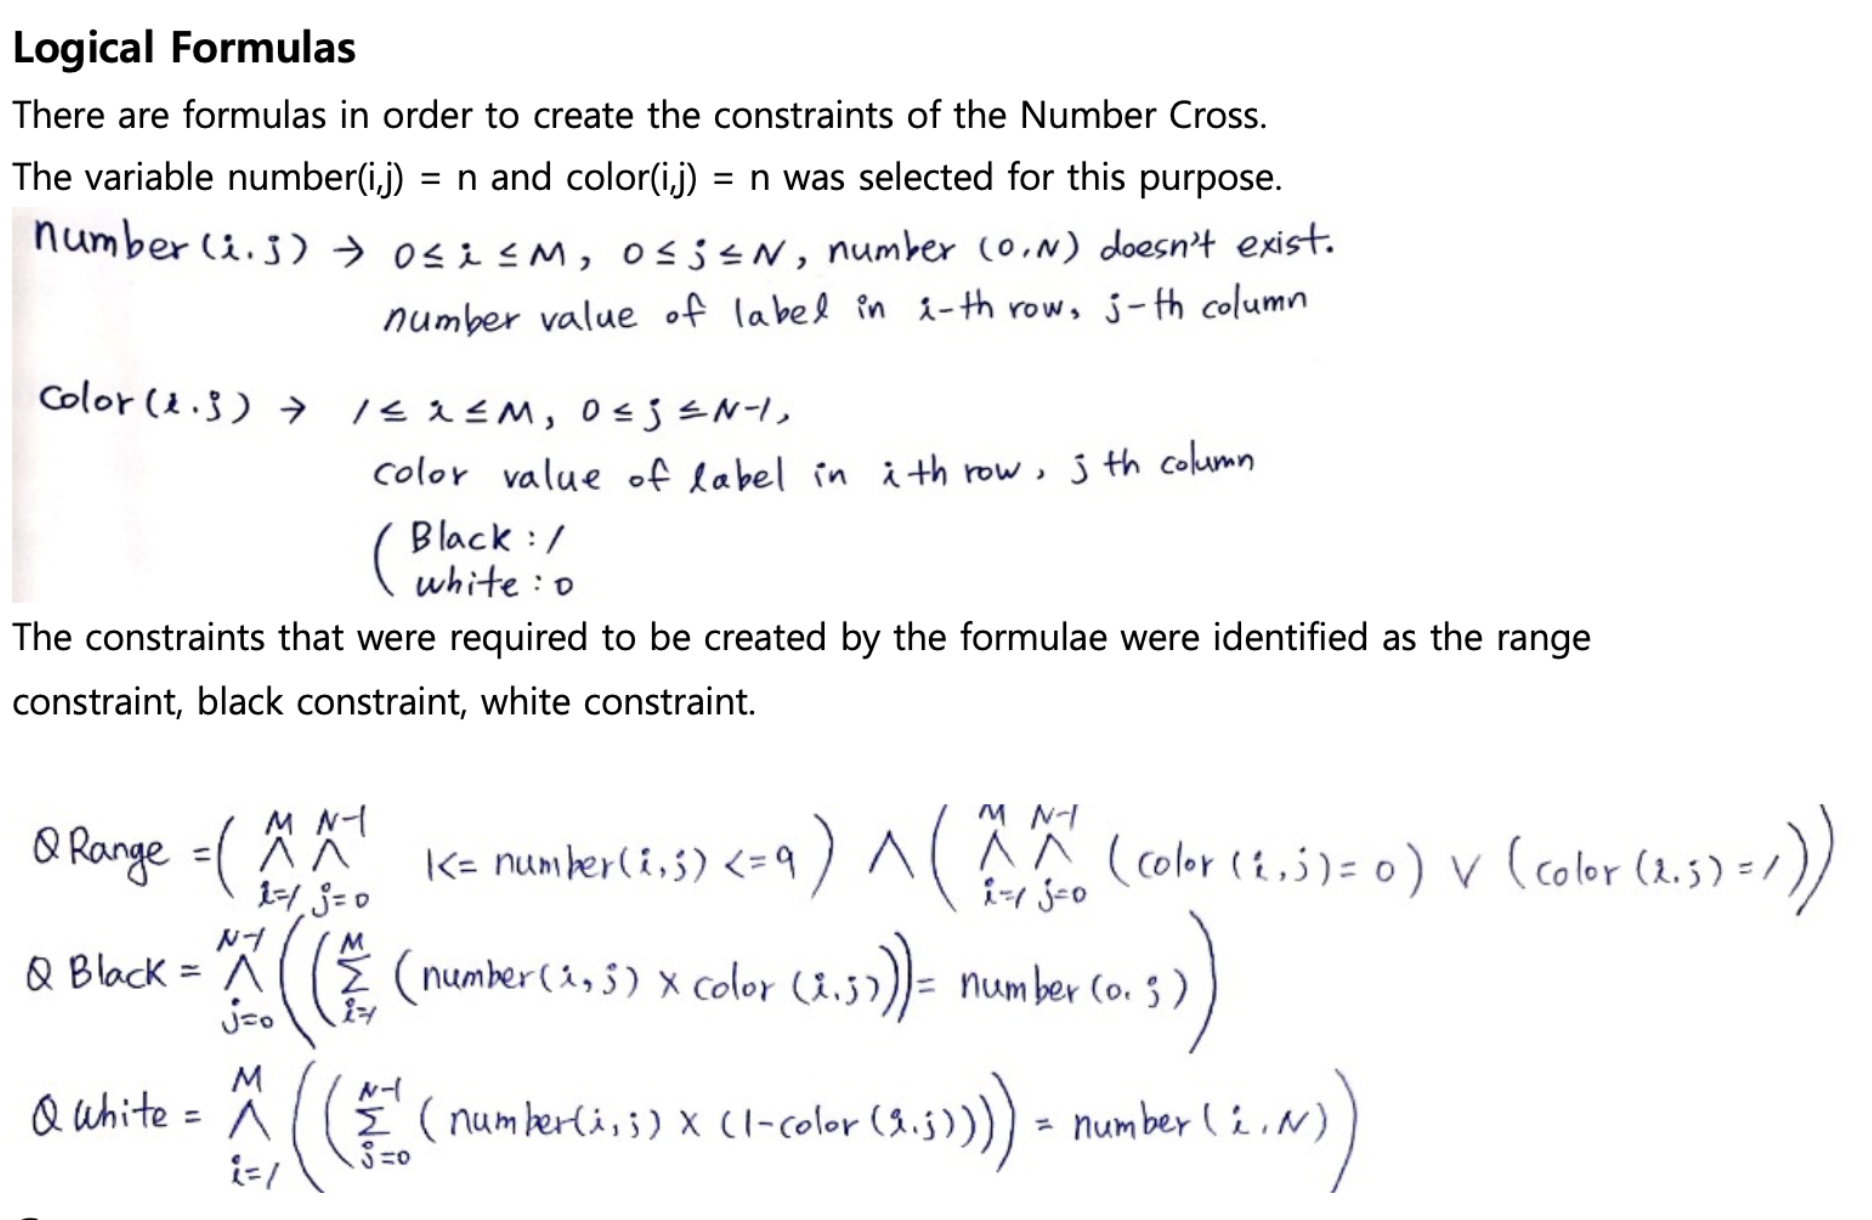 Logical Formulas
There are formulas in order to create the constraints of the Number Cross.
The variable number(i,j) = n and color(i,j) = n was selected for this purpose.
number(i.j) → 0≤i≤M, 0≤j≤N, number (0,N) doesn't exist.
number value of label in i-th row, j-th column
Color(i.j) → 1≤i≤M, 0≤j≤N-1,
color value of label in i th row, j th column
( Black : 1
white : 0
The constraints that were required to be created by the formulae were identified as the range
constraint, black constraint, white constraint.
Q Range = ( ⋀_{i=1}^{M} ⋀_{j=0}^{N-1} 1<= number(i,j) <=9 ) ∧ ( ⋀_{i=1}^{M} ⋀_{j=0}^{N-1} (color (i,j)=0) ∨ (color (i.j)=1))
Q Black = ⋀_{j=0}^{N-1} ((∑_{i=1}^{M} (number(i,j) × color (i.j)))= number (0.j))
Q White = ⋀_{i=1}^{M} ((∑_{j=0}^{N-1} (number(i,j) × (1-color(i.j)))) = number (i.N))